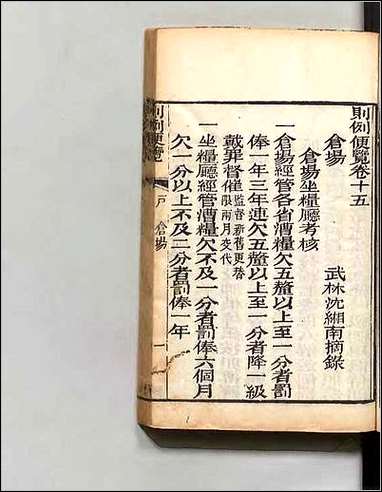 則例便覽卷十五
倉場
武林沈緗南摘錄
倉場坐糧廳考核
一倉場經管各省漕糧欠五釐以上至一分者罰
俸一年三年連欠五釐以上至一分者降一級
戴罪督催監督新舊更替
限兩月交代
一坐糧廳經管漕糧欠不及一分者罰俸六個月
欠一分以上不及二分者罰俸一年
則例便覽
戶 倉場
一